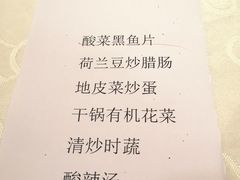 酸菜黑鱼片
荷兰豆炒腊肠
地皮菜炒蛋
干锅有机花菜
清炒时蔬
酸辣汤